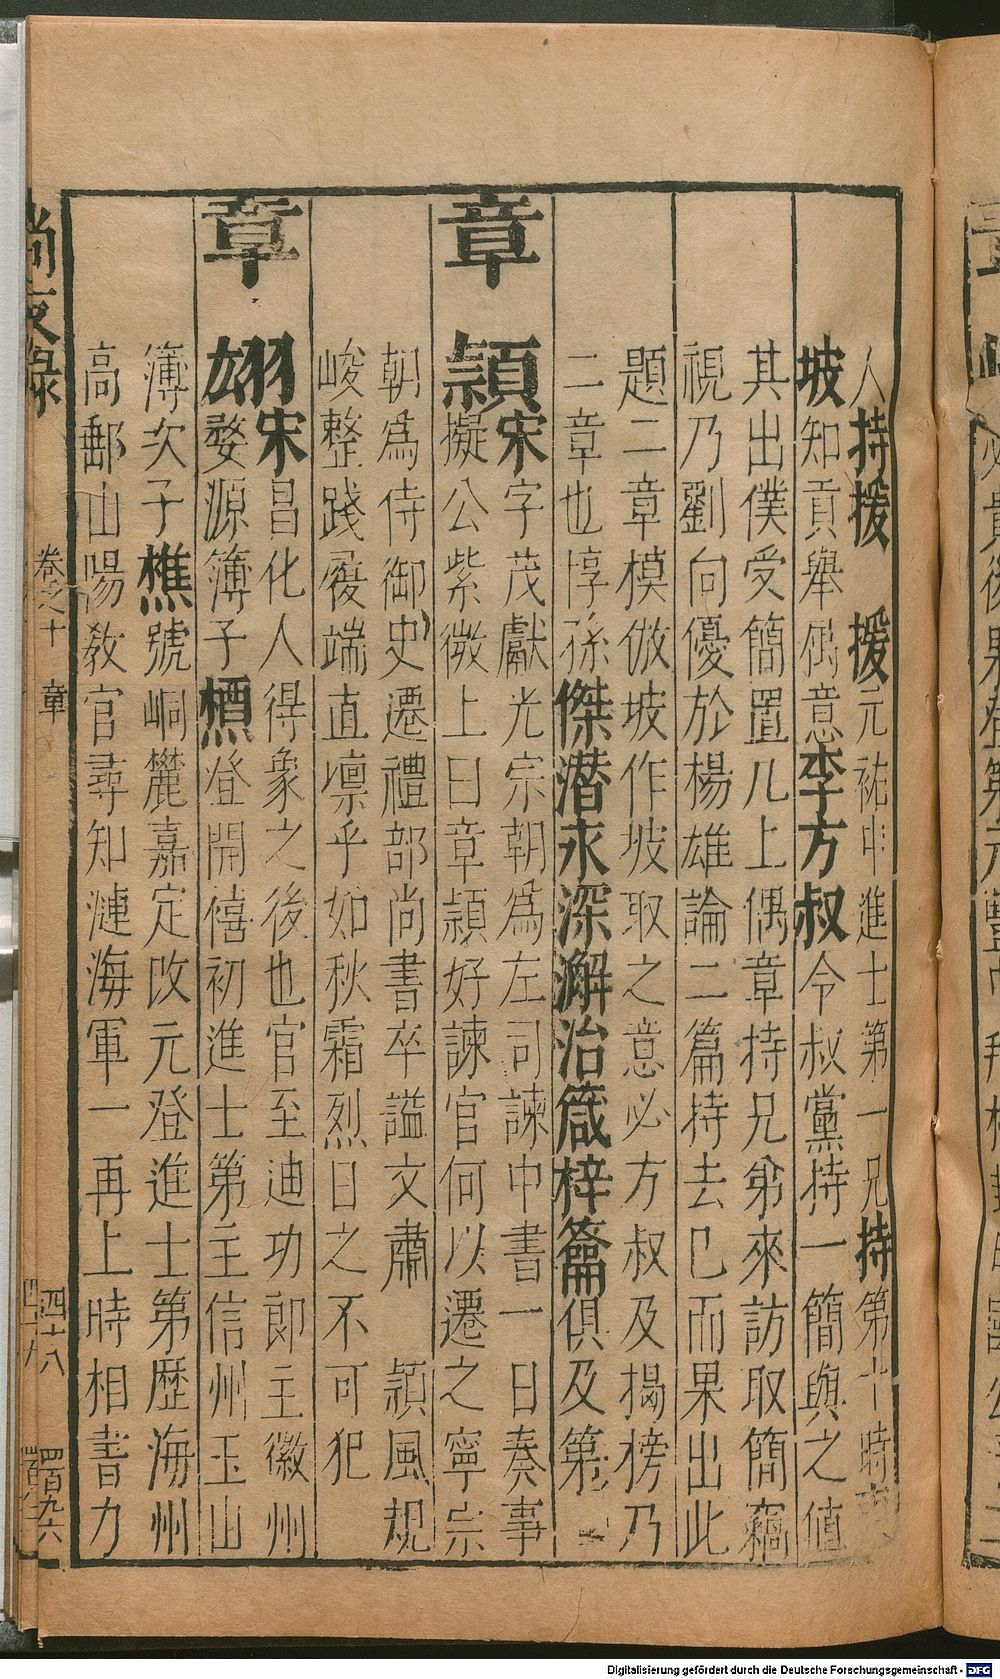 人持援　援元祐中進士第一兄持第十時東
坡知貢舉属意李方叔令叔黨持一簡與之值
其出僕受簡置几上偶章持兄弟來訪取簡竊
視乃劉向優於楊雄論二篇持去巳而果出此
題二章模倣坡作坡取之意必方叔及揭榜乃
二章也惇孫傑潜永深澥治箴梓籥俱及第
章頴宋字茂獻光宗朝為左司諫中書一日奏事
擬公紫微上曰章頴好諫官何以遷之寧宗
朝為侍御史遷禮部尚書卒謚文肅　頴風規
峻整踐履端直凛乎如秋霜烈日之不可犯
章宋昌化人得象之後也官至迪功郎主徽州
婺源簿子槱登開禧初進士第主信州玉山
簿次子樵號峒麓嘉定改元登進士第歷海州
高郵山陽教官尋知漣海軍一再上時相書力
尚友錄　卷之十　章　四十八　四百九六
Digitalisierung gefördert durch die Deutsche Forschungsgemeinschaft - DFG